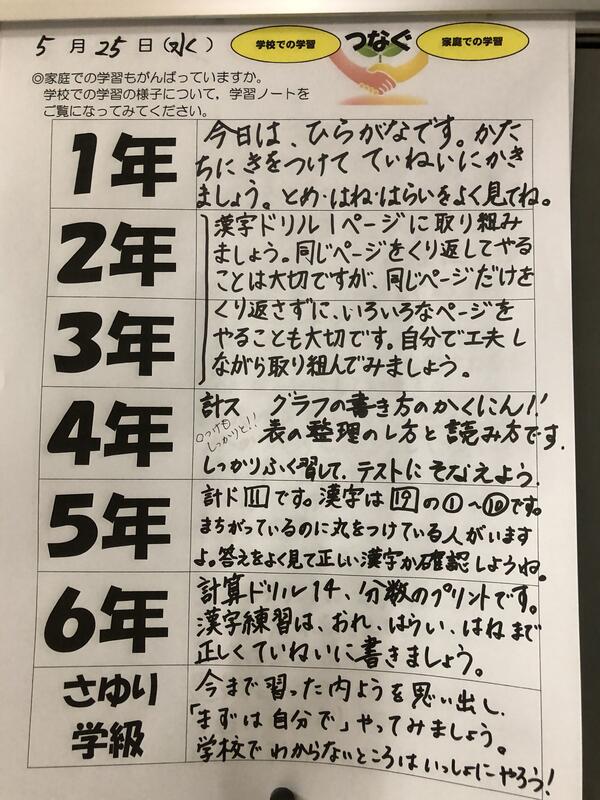 5月25日(水)
学校での学習 つなぐ 家庭での学習
◎家庭での学習もがんばっていますか。
学校での学習の様子について，学習ノートを
ご覧になってみてください。
1年
今日は、ひらがなです。かた
ちに きをつけて ていねいにかき
ましょう。とめ・はね・はらいをよく見てね。
2年
3年
漢字ドリル1ページに取り組み
ましょう。同じページをくり返してやる
ことは大切ですが、同じページだけを
くり返さずに、いろいろなページを
やることも大切です。自分で工夫し
ながら取り組んでみましょう。
4年
計ス グラフの書き方のかくにん!!
○つけも
しっかりと!!
表の整理のし方と読み方です.
しっかりふく習して、テストに そなえよう.
5年
計ド 11 です。漢字は 19 の①～⑩です。
まちがっているのに丸をつけている人がいます
よ。答えをよく見て正しい漢字か確認しようね。
6年
計算ドリル14、分数のプリントです。
漢字練習は、おれ、はらい、はねまで
正しくていねいに書きましょう。
さゆり
学級
今まで習った内ようを思い出し、
「まずは自分で」やってみましょう。
学校でわからないところはいっしょにやろう!